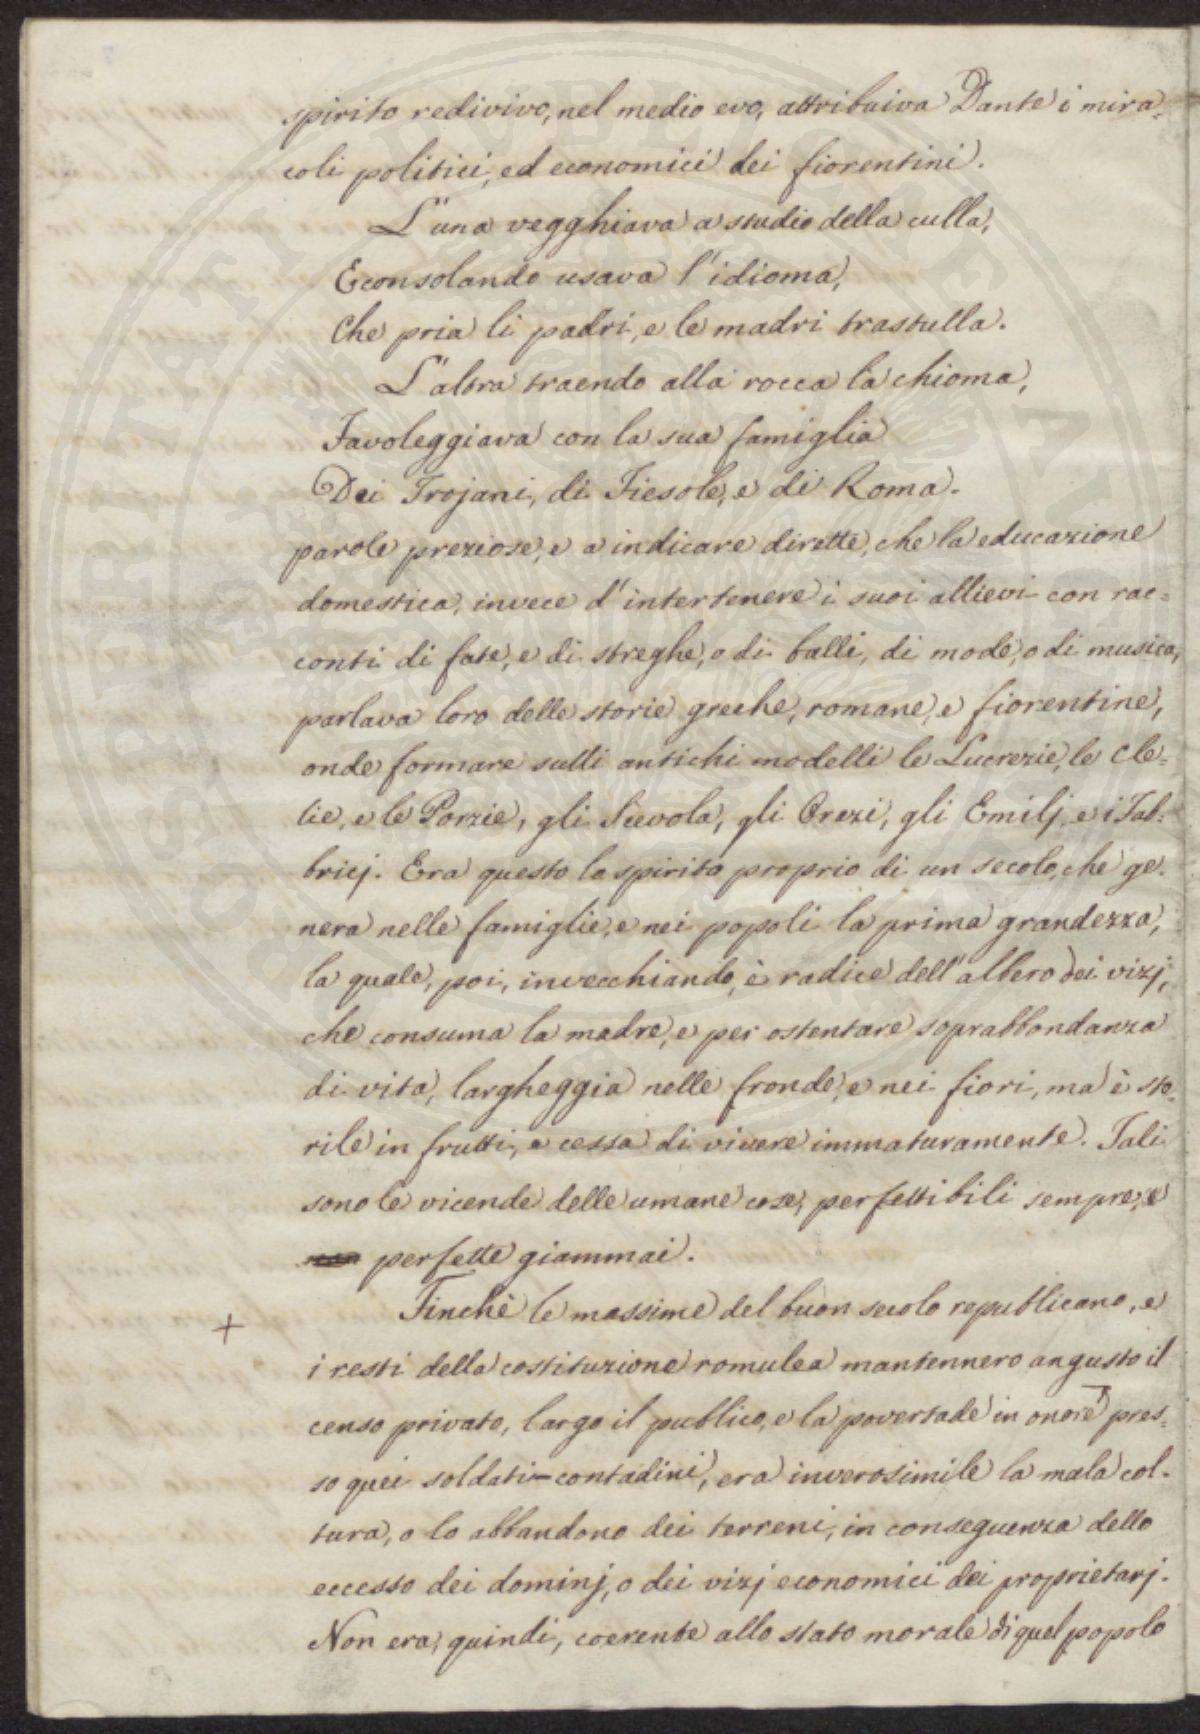 spirito redivivo, nel medio evo, attribuiva Dante i mira=
coli politici, ed economici dei fiorentini.
L'una vegghiava a studio della culla,
E consolando usava l'idioma,
Che pria li padri, e le madri trastulla.
L'altra traendo alla rocca la chioma,
Favoleggiava con la sua famiglia
Dei Trojani, di Fiesole, e di Roma.
parole preziose, e a indicare dirette, che la educazione
domestica, invece d'intertenere i suoi allievi con rac=
conti di fate, e di streghe, o di balli, di mode, o di musica,
parlava loro delle storie greche, romane, e fiorentine,
onde formare sulli antichi modelli le Lucrezie, le Cle=
lie, e le Porzie, gli Scevola, gli Orazi, gli Emilj, e i Fab=
bricj. Era questo lo spirito proprio di un secolo, che ge=
nera nelle famiglie, e nei popoli la prima grandezza,
la quale, poi, invecchiando, è radice dell'albero dei vizj,
che consuma la madre, e per ostentare soprabbondanza
di vita, largheggia nelle fronde, e nei fiori, ma è ste=
rile in frutti, e cessa di vivere immaturamente. Tali
sono le vicende delle umane cose, perfettibili sempre, e
perfette giammai.
+ Finchè le massime del buon secolo republicano, e
i resti della costituzione romulea mantennero angusto il
censo privato, largo il publico, e la povertade in onore pres=
so quei soldati-contadini, era inverosimile la mala col=
tura, o lo abbandono dei terreni, in conseguenza dello
eccesso dei dominj, o dei vizj economici dei proprietarj.
Non era, quindi, coerente allo stato morale di quel popolo